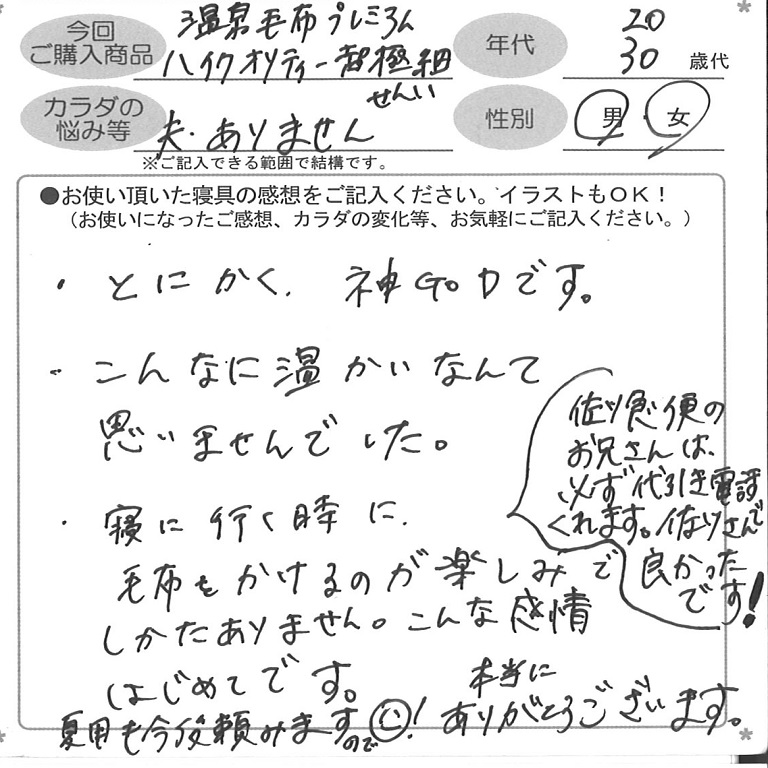 今回
ご購入商品
温泉毛布プレミアム
ハイクオリティー超極細
せんい
年代
20
30 歳代
カラダの
悩み等
夫・ありません
※ご記入できる範囲で結構です。
性別
男・女
●お使い頂いた寝具の感想をご記入ください。イラストもOK！
（お使いになったご感想、カラダの変化等、お気軽にご記入ください。）
・とにかく、神GODです。
・こんなに温かいなんて
思いませんでした。
・寝に行く時に、
毛布をかけるのが楽しみで
しかたありません。こんな感情
はじめてです。
佐川急便の
お兄さんは、
必ず代引き電話
くれます。佐川さんで
良かった
です!
夏用も今後頼みます
ので!
本当に
ありがとうございます。